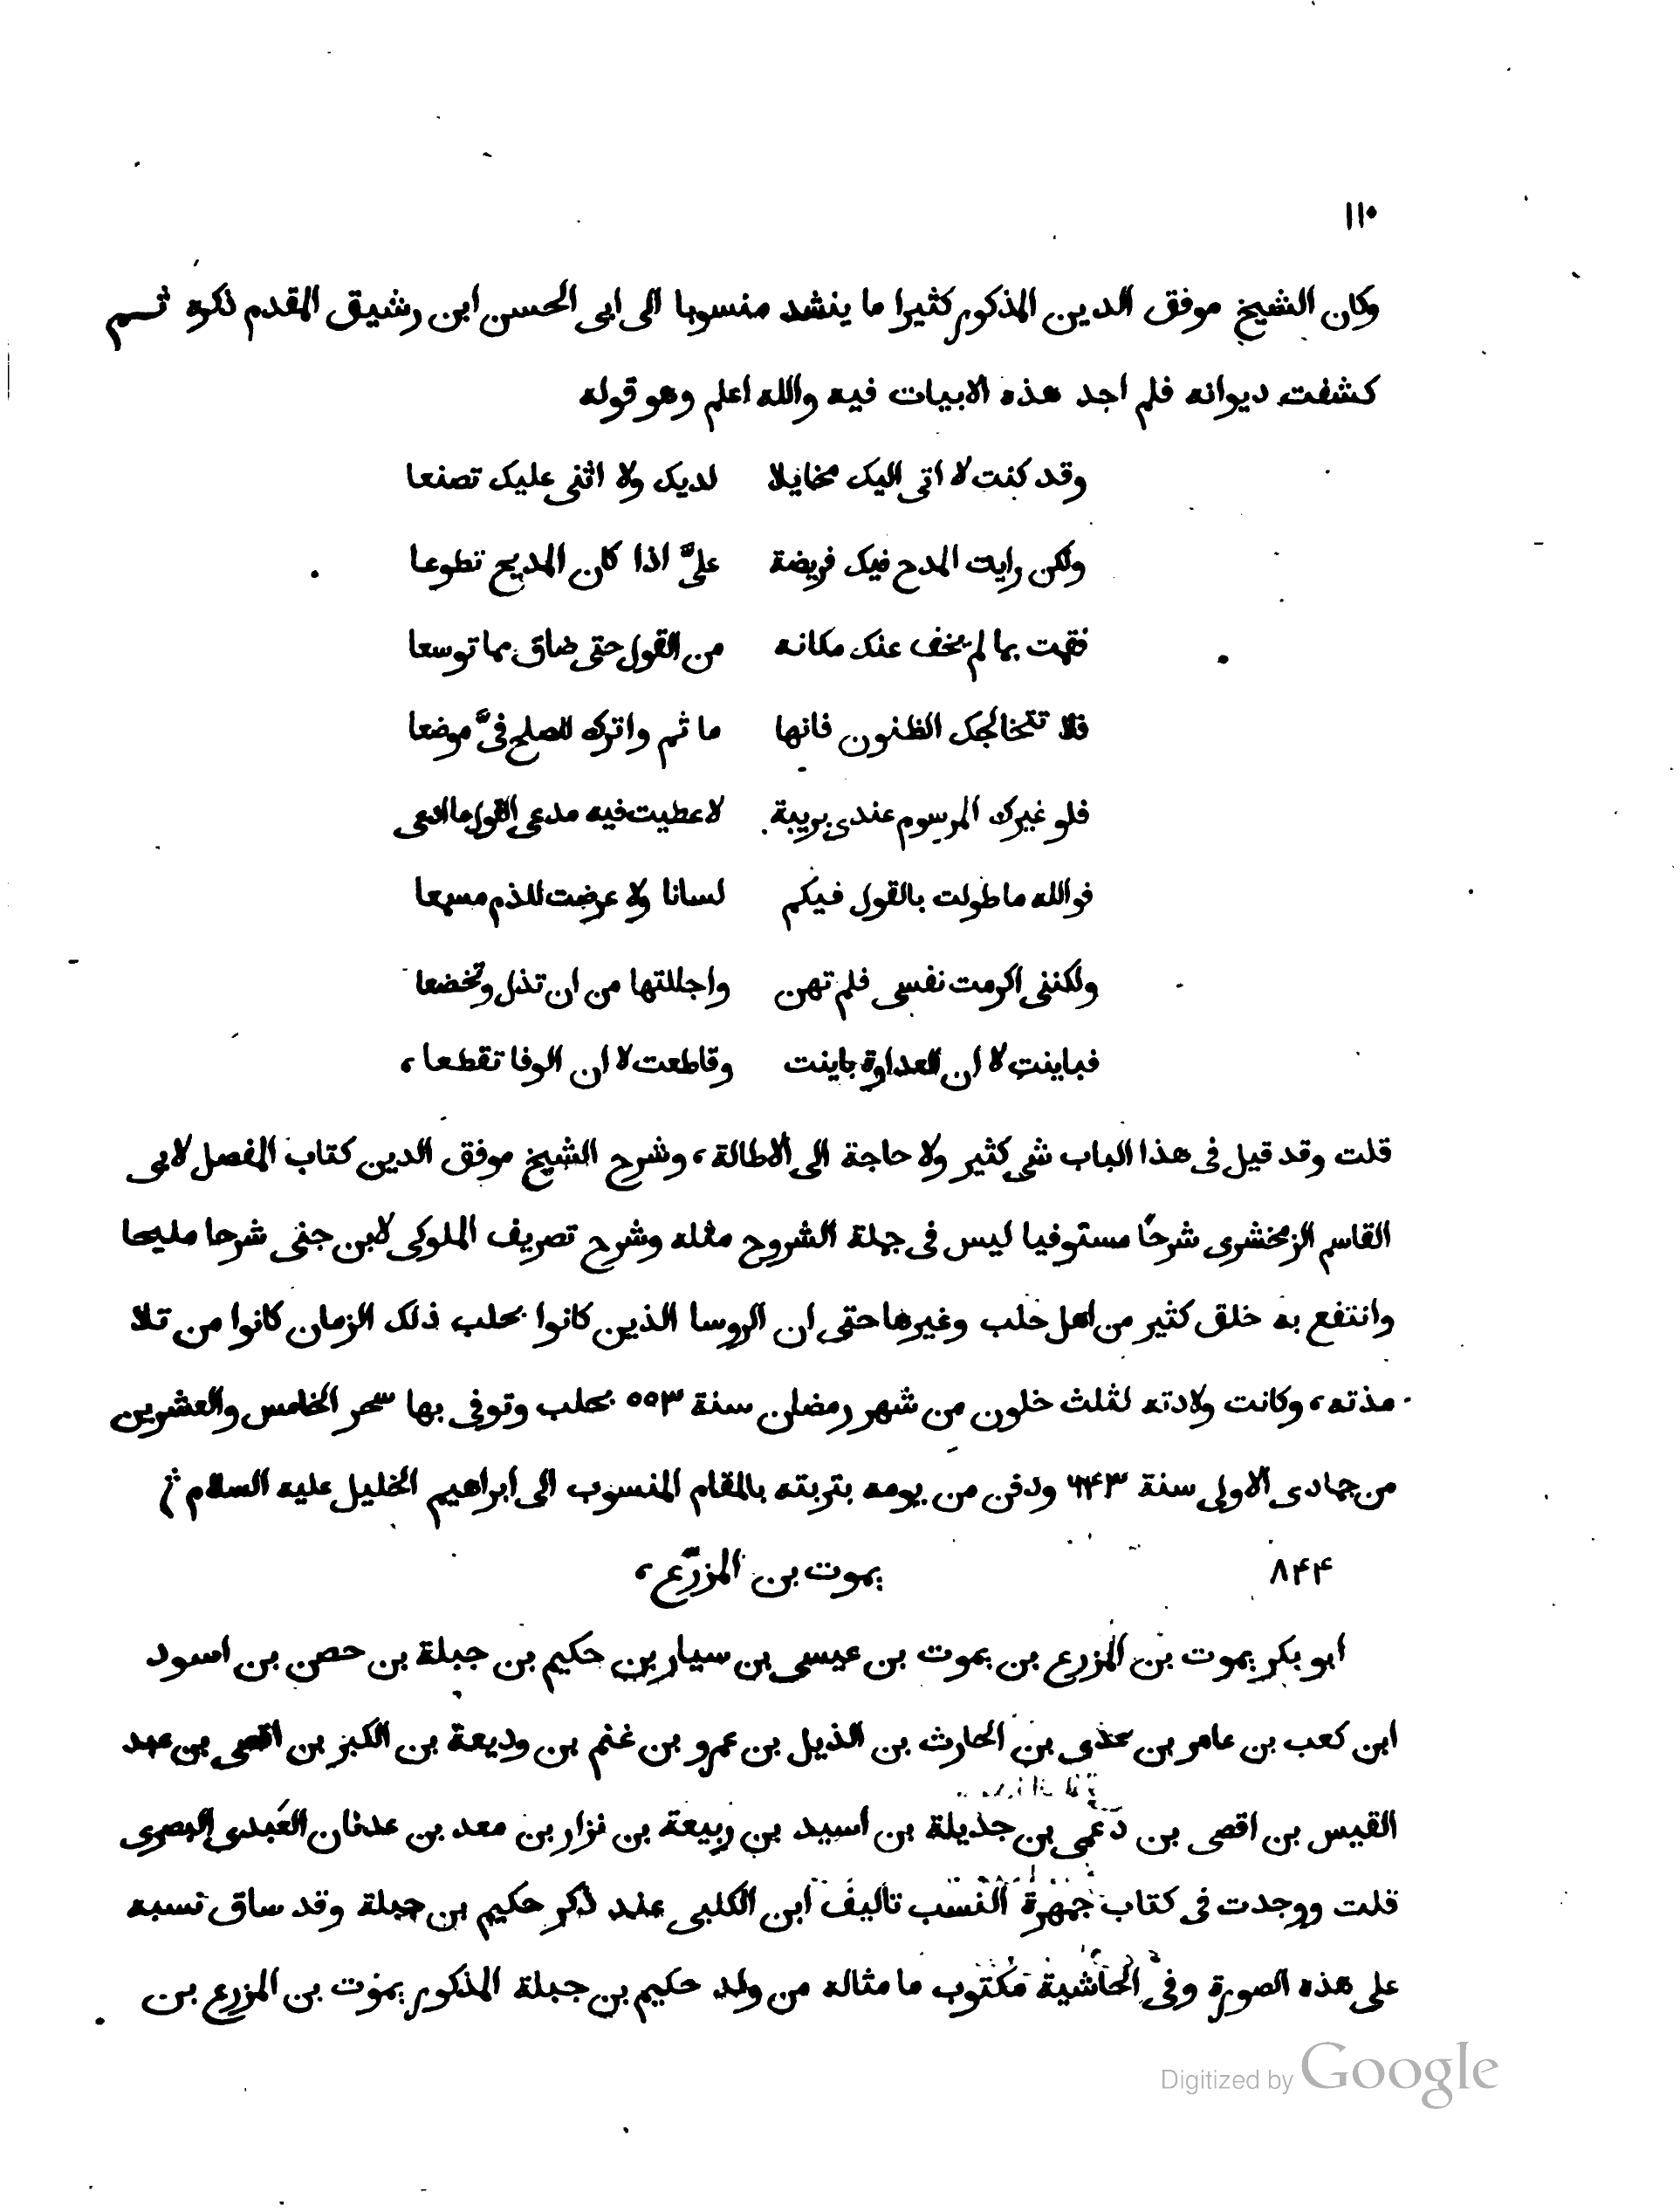 ١١٠
وكان الشيخ موفق الدين المذكور كثيرا ما ينشد منسوبا الى ابى الحسن ابن رشيق المقدم ذكره ثم
كشفت ديوانه فلم اجد هذه الابيات فيه والله اعلم وهو قوله
وقد كنت لا اتى اليك مخايلا لديك ولا اثنى عليك تصنعا
ولكن رايت المدح فيك فريضة علىَّ اذا كان المديح تطوعا
فقمت بما لم يخف عنك مكانه من القول حتى ضاق مما توسعا
فلا تتخالجك الظنون فانها ماثم واترك للصلح فىَّ موضعا
فلو غيرك المرسوم عندى بريبة لاعطيت فيه مدعى القول ما ادعى
فوالله ما طولت بالقول فيكم لسانا ولا عرضت للذم مسمعا
ولكننى اكرمت نفسى فلم تهن واجللتها من ان تذل وتخضعا
فباينت لا ان العداوة باينت وقاطعت لا ان الوفا تقطعا،
قلت وقد قيل فى هذا الباب شى كثير ولا حاجة الى الاطالة، وشرح الشيخ موفق الدين كتاب المفصل لابى
القاسم الزمخشرى شرحًا مستوفيا ليس فى جملة الشروح مثله وشرح تصريف الملوكى لابن جنى شرحا مليحا
وانتفع به خلق كثير من اهل حلب وغيرها حتى ان الروسا الذين كانوا بحلب ذلك الزمان كانوا من تلا
مذته، وكانت ولادته لثلث خلون من شهر رمضان سنة ٥٥٣ بحلب وتوفى بها سحر الخامس والعشرين
من جمادى الاولى سنة ٦۴٣ ودفن من يومه بتربته بالمقام المنسوب الى ابراهيم الخليل عليه السلام
٨۴۴ يموت بن المزرّع،
ابو بكر يموت بن المزرع بن يموت بن عيسى بن سيار بن حكيم بن جبلة بن حصن بن اسود
ابن كعب بن عامر بن عدى بن الحارث بن الذيل بن عمرو بن غنم بن وديعة بن الكيز بن اقصى بن عبد
القيس بن اقصى بن دعمى بن جذيلة بن اسيد بن ربيعة بن نزار بن معد بن عدنان العَبدى البصرى
قلت ووجدت فى كتاب جمهرة النسب تاليف ابن الكلبى عند ذكر حكيم بن جبلة وقد ساق نسبه
على هذه الصورة وفى الحاشية مكتوب ما مثاله من ولد حكيم بن جبلة المذكور يموت بن المزرع بن
Digitized by Google